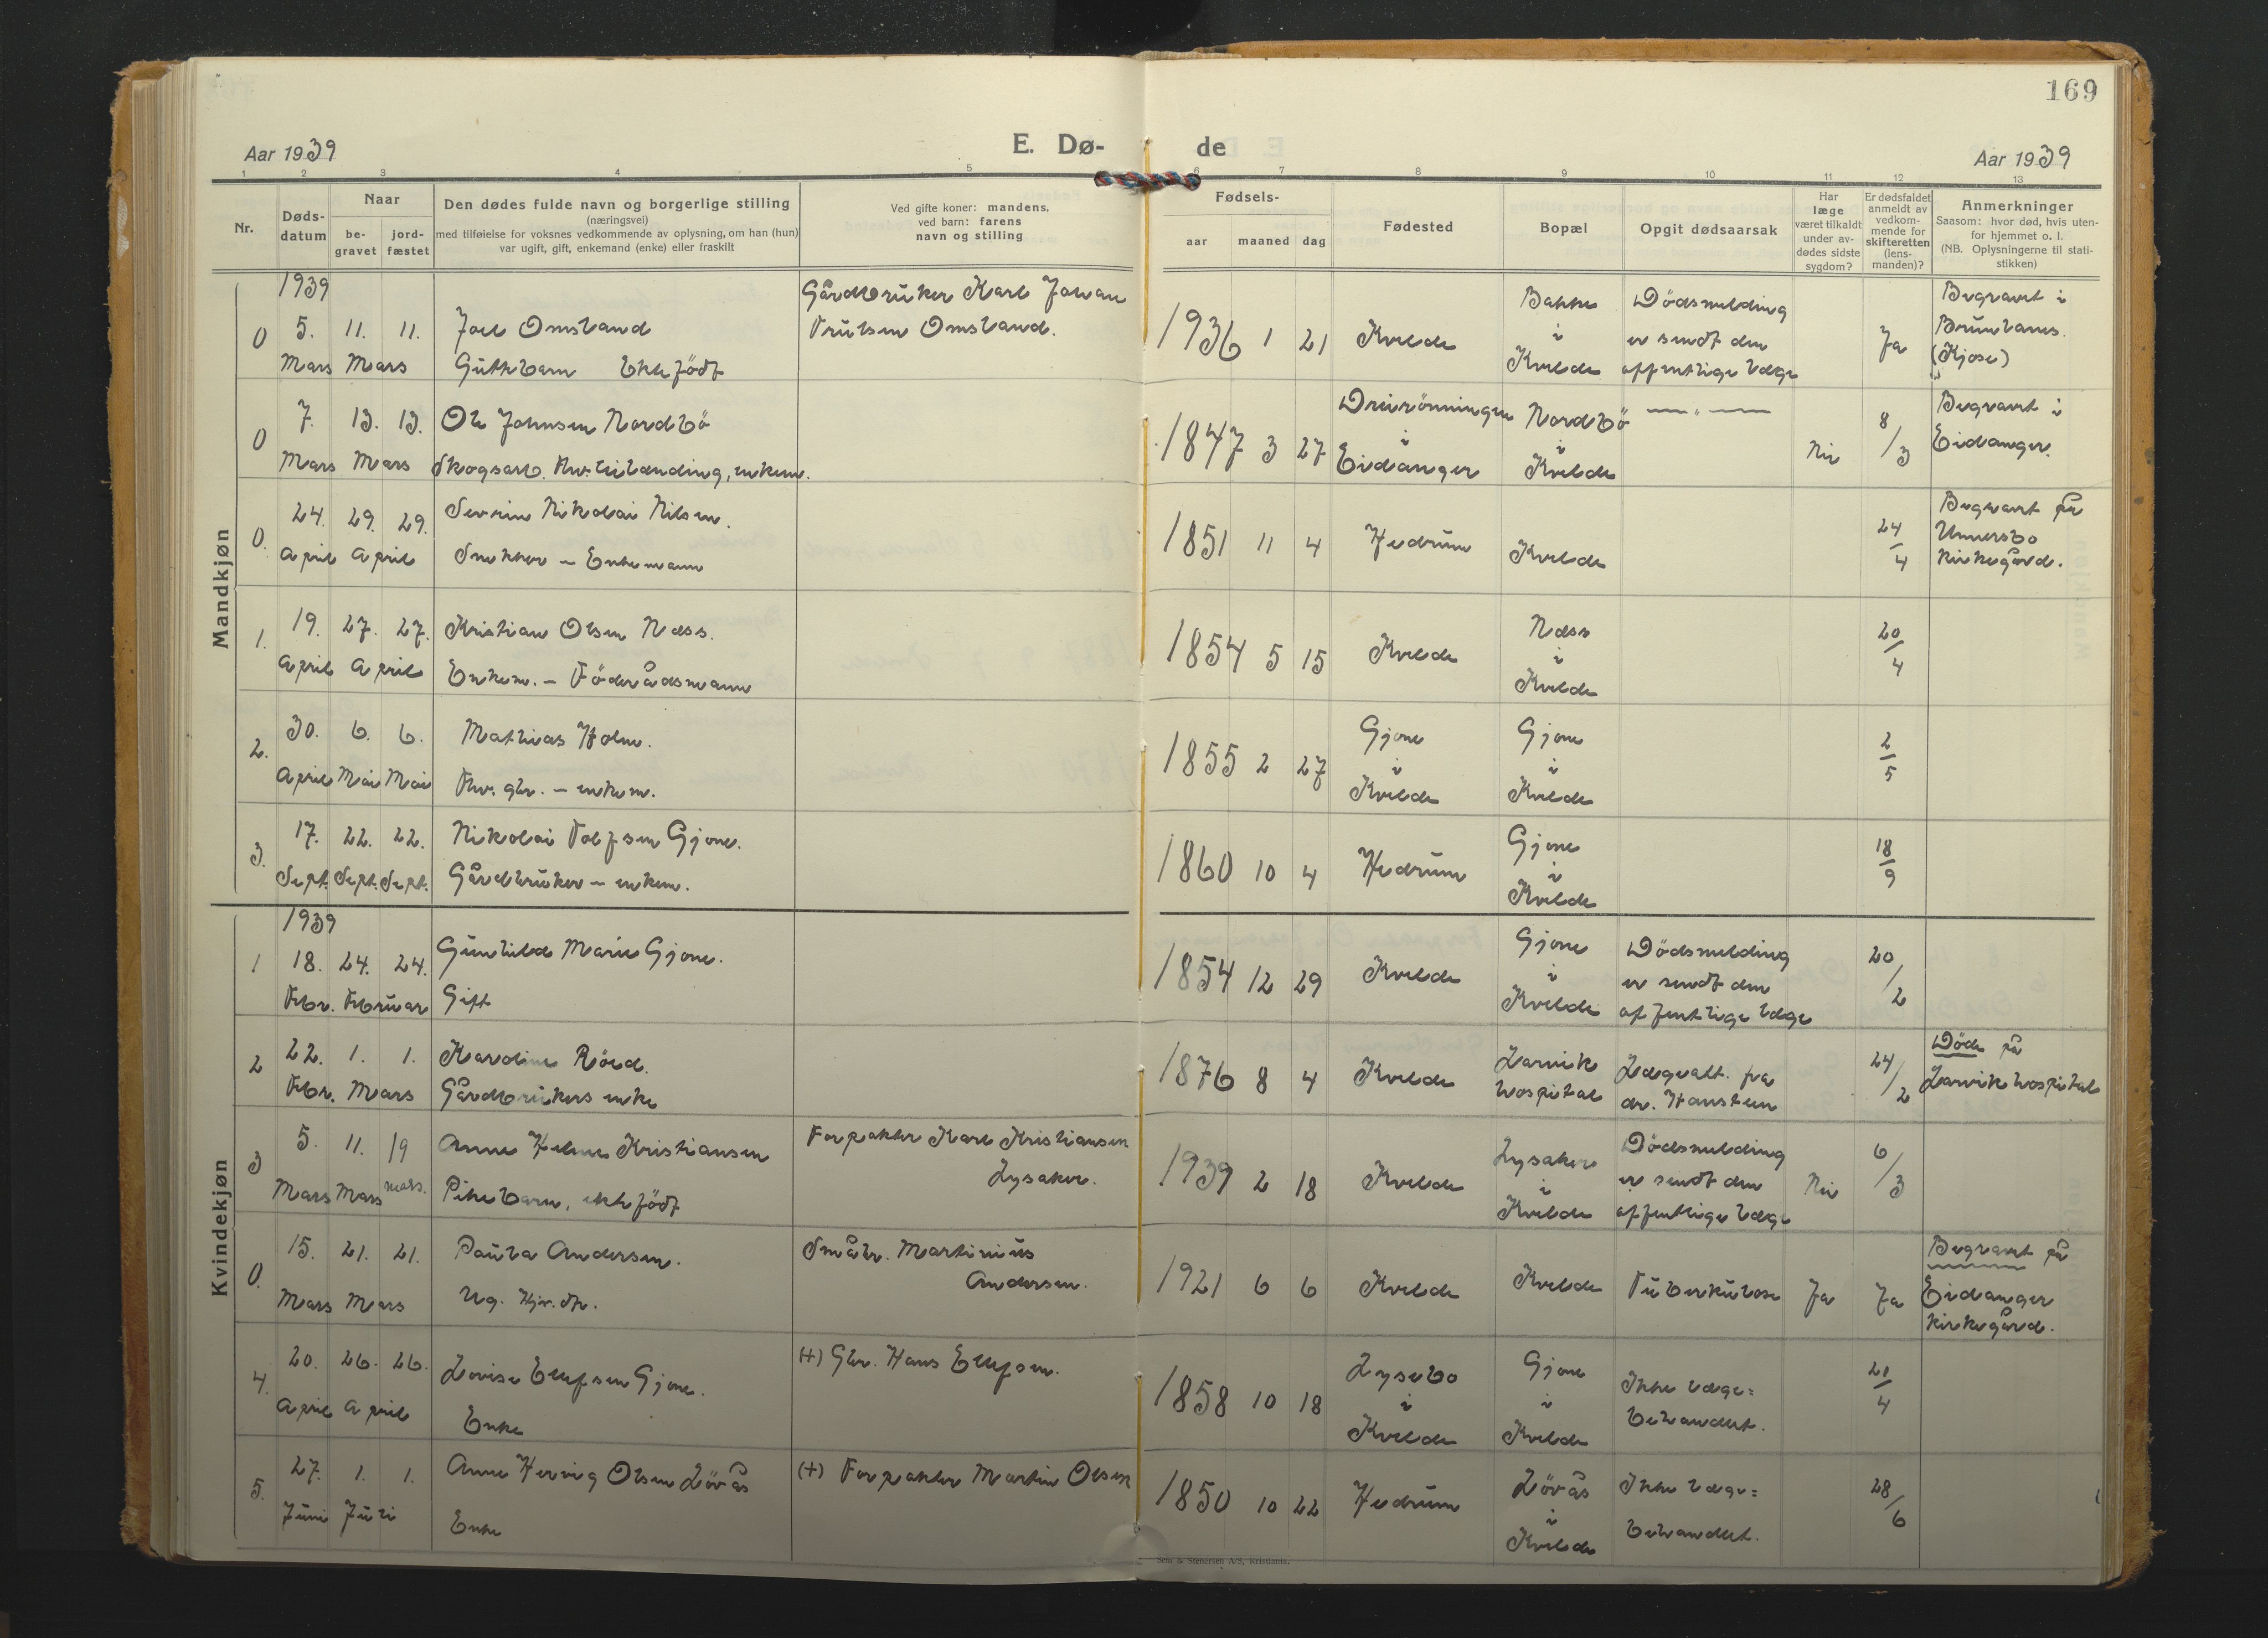 169
Aar 1939
E. Dø-
de
Aar 1939
1 2 3 4 5 6 7 8 9 10 11 12 13
Nr.
Døds-
datum
Naar
be-
gravet
jord-
fæstet
Den dødes fulde navn og borgerlige stilling
(næringsvei)
med tilføielse for voksnes vedkommende av oplysning, om han (hun)
var ugift, gift, enkemand (enke) eller fraskilt
Ved gifte koner: mandens,
ved barn: farens
navn og stilling
Fødsels-
aar maaned dag
Fødested
Bopæl
Opgit dødsaarsak
Har
læge
været tilkaldt
under av-
dødes sidste
sygdom?
Er dødsfaldet
anmeldt av
vedkom-
mende for
skifteretten
(lens-
manden)?
Anmerkninger
Saasom: hvor død, hvis uten-
for hjemmet o. l.
(NB. Oplysningerne til stati-
stikken)
Mandkjøn
1939
0 5. 11. 11. Joel Omsland
Mars Mars Guttbarn Ektefödt
Gårdbruker Karl Johan
Trulsen Omsland.
1936 1 21 Kvelde
Bakke
i
Kvelde
Dödsmelding
er sendt den
offentlige læge
Ja
Begravet i
Brunlanes.
(Kjose)
0 7. 13. 13. Ole Johnsen Nordbö
Mars Mars Skogsarb. Fhv. leilending, enkem.
1847 3 27
i
Eidanger
Nordbö
i
Kvelde
— " —
Nei
8/3
Begravet i
Eidanger.
0. 24. 29. 29. Severin Nikolai Nilsen.
April April Snekker – Enkemann
1851 11 4 Hedrum Kvelde
24/4
Begravet på
Ummersbo
kirkegård.
1. 19. 27. 27. Kristian Olsen Næss.
April April Enkem. – Föderådsmann
1854 5 15 Kvelde
Næss
i
Kvelde
20/4
2. 30. 6. 6. Mathias Holm.
April Mai Mai Fhv. gbr. – enkem.
1855 2 27
Gjone
i
Kvelde
Gjone
i
Kvelde
2/5
3. 17. 22. 22. Nikolai Gjone.
Sept. Sept. Sept. Gårdbruker – enkem.
1860 10 4 Hedrum
Gjone
i
Kvelde
18/9
Kvindekjøn
1939
1 18. 24. 24. Gunhild Marie Gjone.
Febr. Februar Gift
1854 12 29 Kvelde
Gjone
i
Kvelde
Dödsmelding
er sendt den
offentlige læge
20/2
2 22. 1. 1. Karoline Röed.
Febr. Mars Gårdbrukers enke
1876 8 4 Kvelde
Larvik
hospital
Lægeatt. fra
dr. Hansteen
24/2
Döde på
Larvik hospital
3 5. 11. 19 Anne Helene Kristiansen
Mars Mars mars. Pikebarn, ektefödt
Forpakter Karl Kristiansen
Lysaker.
1939 2 18 Kvelde
Lysaker
i
Kvelde
Dödsmelding
er sendt den
offentlige læge
Nei
6/3
0. 15. 21. 21. Paula Andersen.
Mars Mars Ug. Hjv. dtr.
Småbr. Martinius
Andersen.
1921 6 6 Kvelde Kvelde Tuberkulose Ja Ja
Begravet på
Eidanger
kirkegård.
4. 20. 26. 26. Lovise Ellefsen Gjone.
April April Enke
(+) Gbr. Hans Ellefsen.
1858 10 18
Lysebo
i
Kvelde
Gjone
i
Kvelde
Ikke læge=
behandlet.
21/4
5. 27. 1. 1. Anne Hervig Olsen Lövås
Juni Juli Enke
(+) Forpakter Martin Olsen
1850 10 22 Hedrum
Lövås
i
Kvelde
Ikke læge=
behandlet.
28/6
Sem & Stenersen A/S, Kristiania.